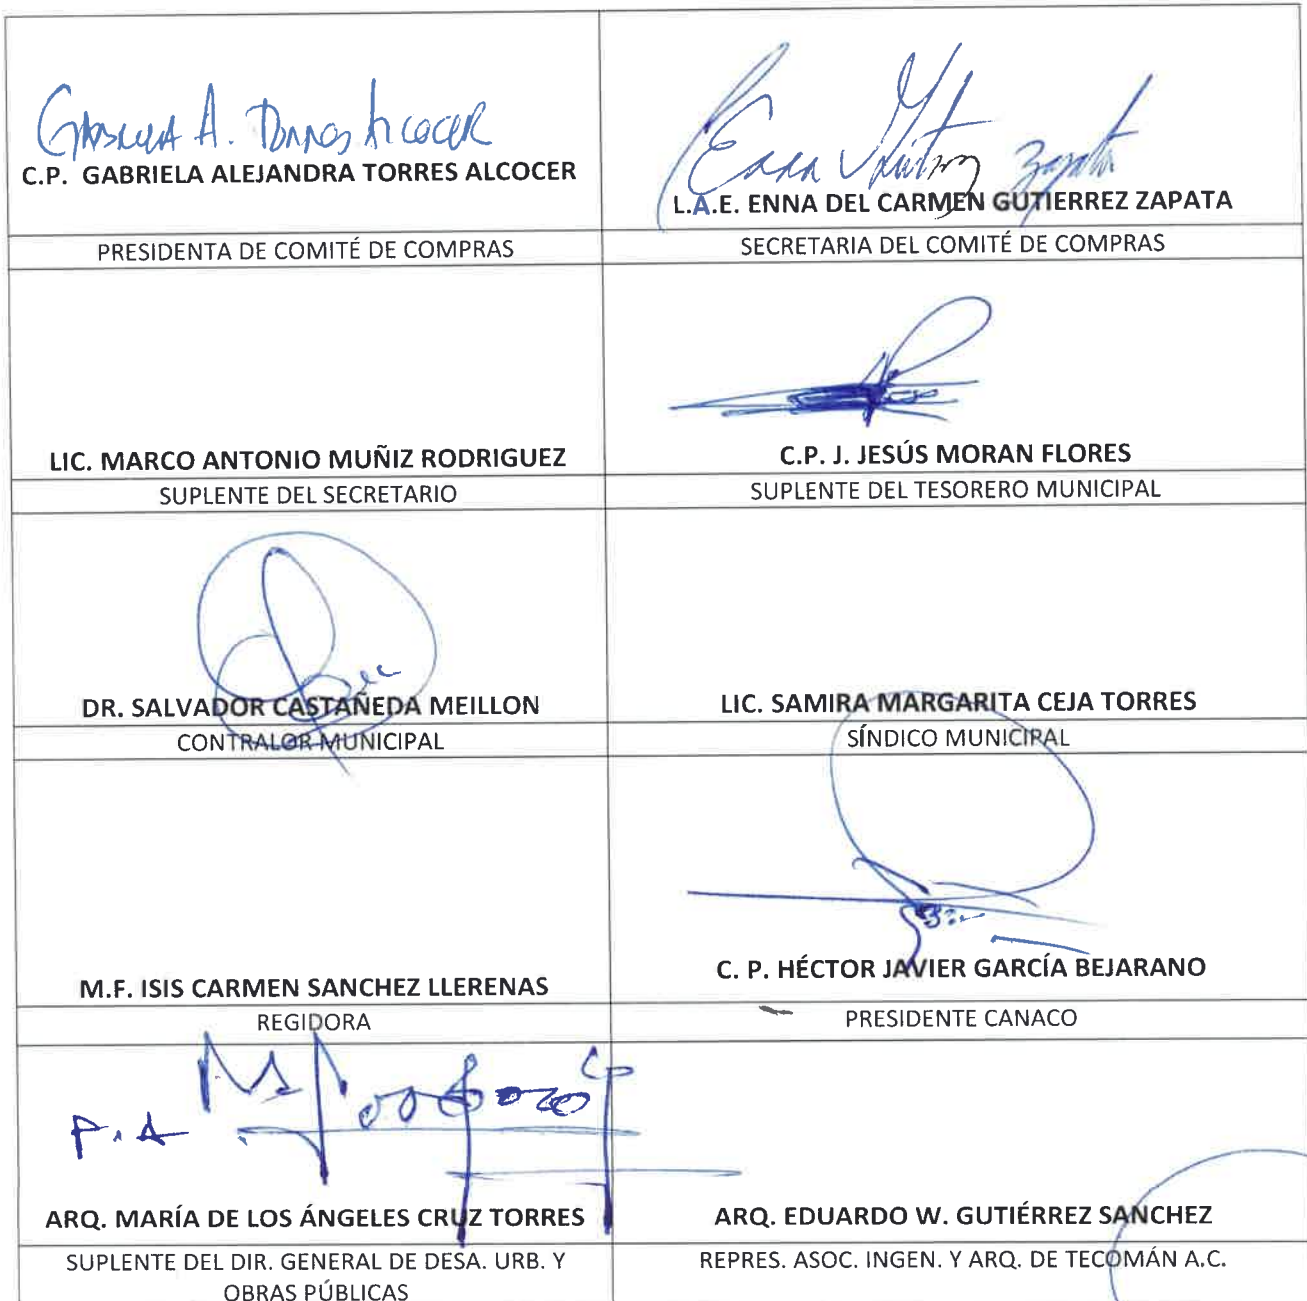 Gabriela A. Torres Alcocer
Enna Gutierrez Zapata
C.P. GABRIELA ALEJANDRA TORRES ALCOCER
L.A.E. ENNA DEL CARMEN GUTIERREZ ZAPATA
PRESIDENTA DE COMITÉ DE COMPRAS
SECRETARIA DEL COMITÉ DE COMPRAS
LIC. MARCO ANTONIO MUÑIZ RODRIGUEZ
C.P. J. JESÚS MORAN FLORES
SUPLENTE DEL SECRETARIO
SUPLENTE DEL TESORERO MUNICIPAL
DR. SALVADOR CASTAÑEDA MEILLON
LIC. SAMIRA MARGARITA CEJA TORRES
CONTRALOR MUNICIPAL
SÍNDICO MUNICIPAL
M.F. ISIS CARMEN SANCHEZ LLERENAS
C. P. HÉCTOR JAVIER GARCÍA BEJARANO
REGIDORA
PRESIDENTE CANACO
P.A
ARQ. MARÍA DE LOS ÁNGELES CRUZ TORRES
ARQ. EDUARDO W. GUTIÉRREZ SANCHEZ
SUPLENTE DEL DIR. GENERAL DE DESA. URB. Y
OBRAS PÚBLICAS
REPRES. ASOC. INGEN. Y ARQ. DE TECOMÁN A.C.